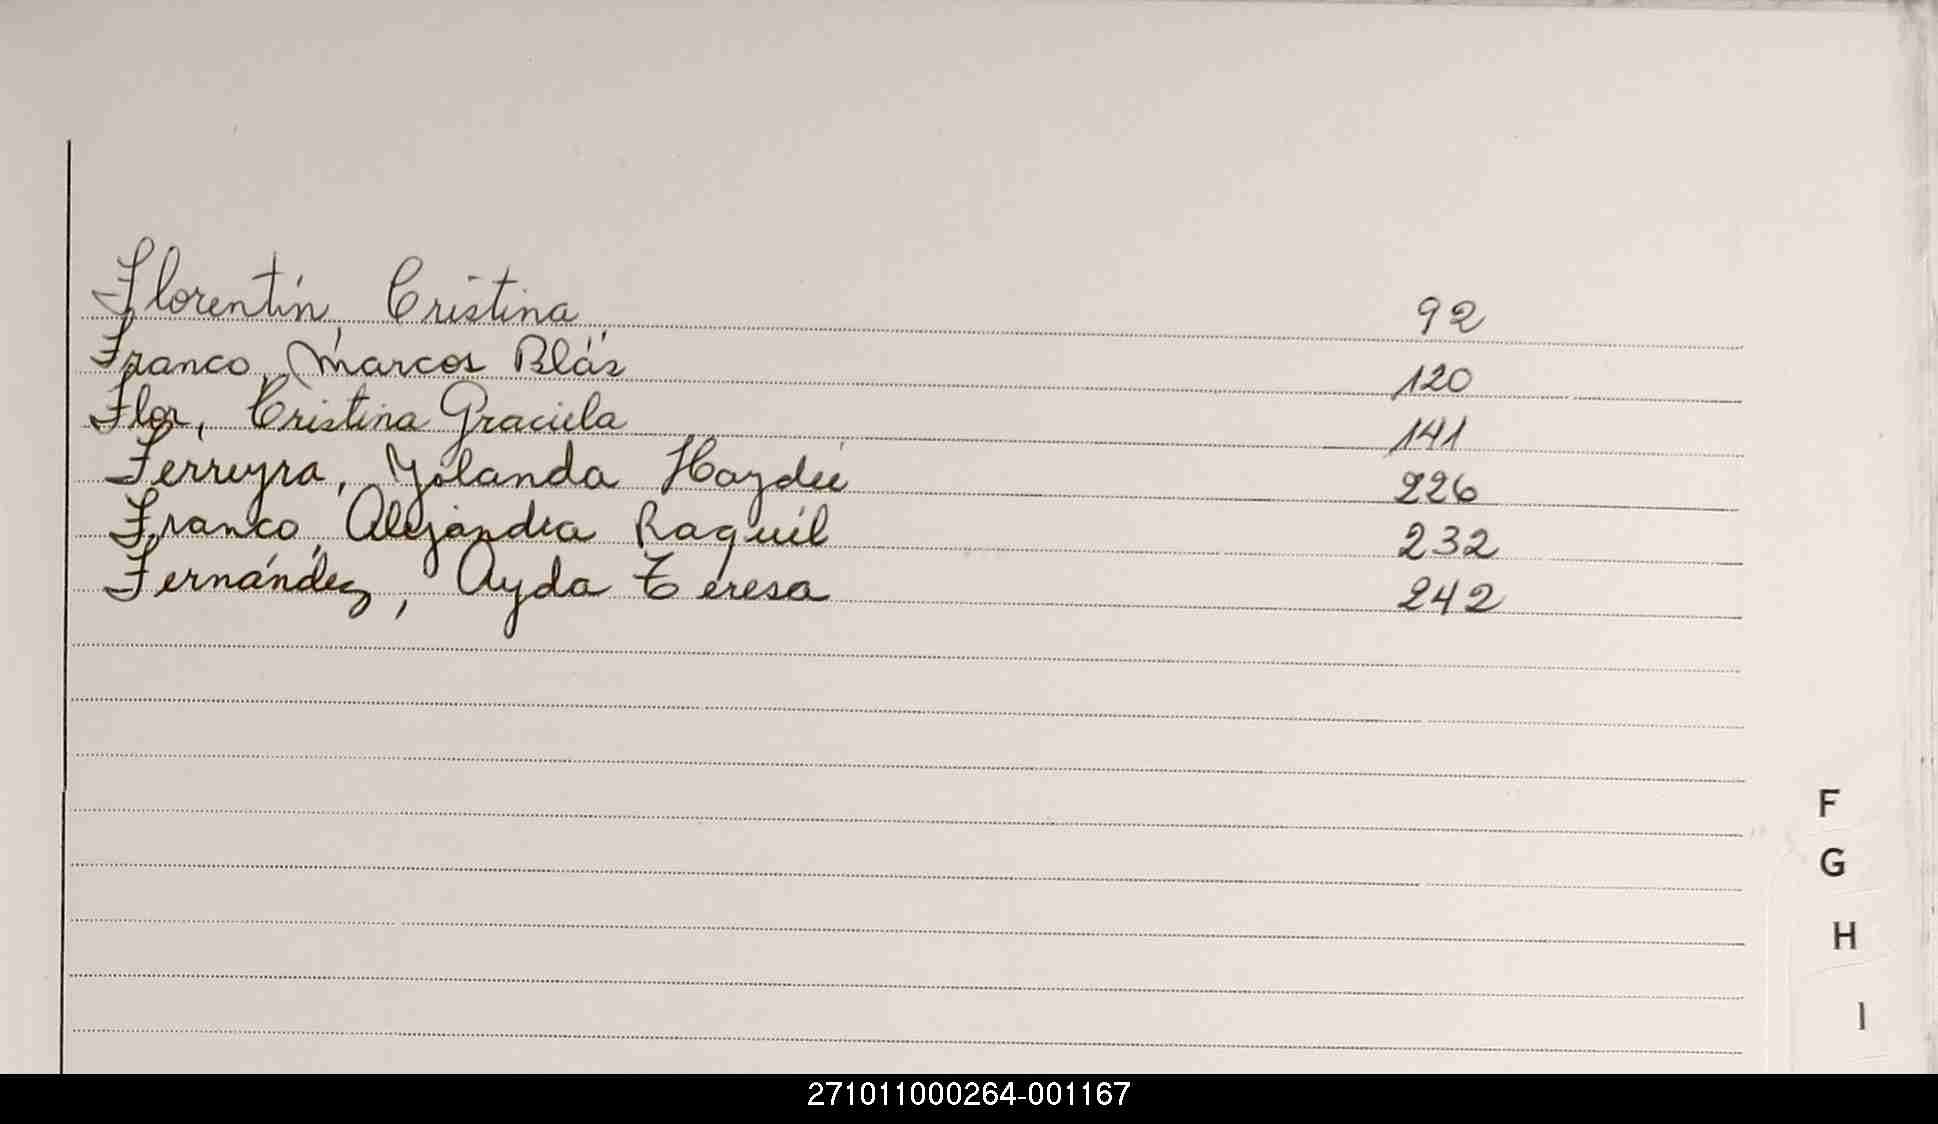 Florentín, Cristina 92
Franco, Marcos Blás 120
Flor, Cristina Graciela 141
Ferreyra, Yolanda Haydeé 226
Franco, Alejandra Raquel 232
Fernández, Ayda Teresa 242
F
G
H
I
271011000264-001167